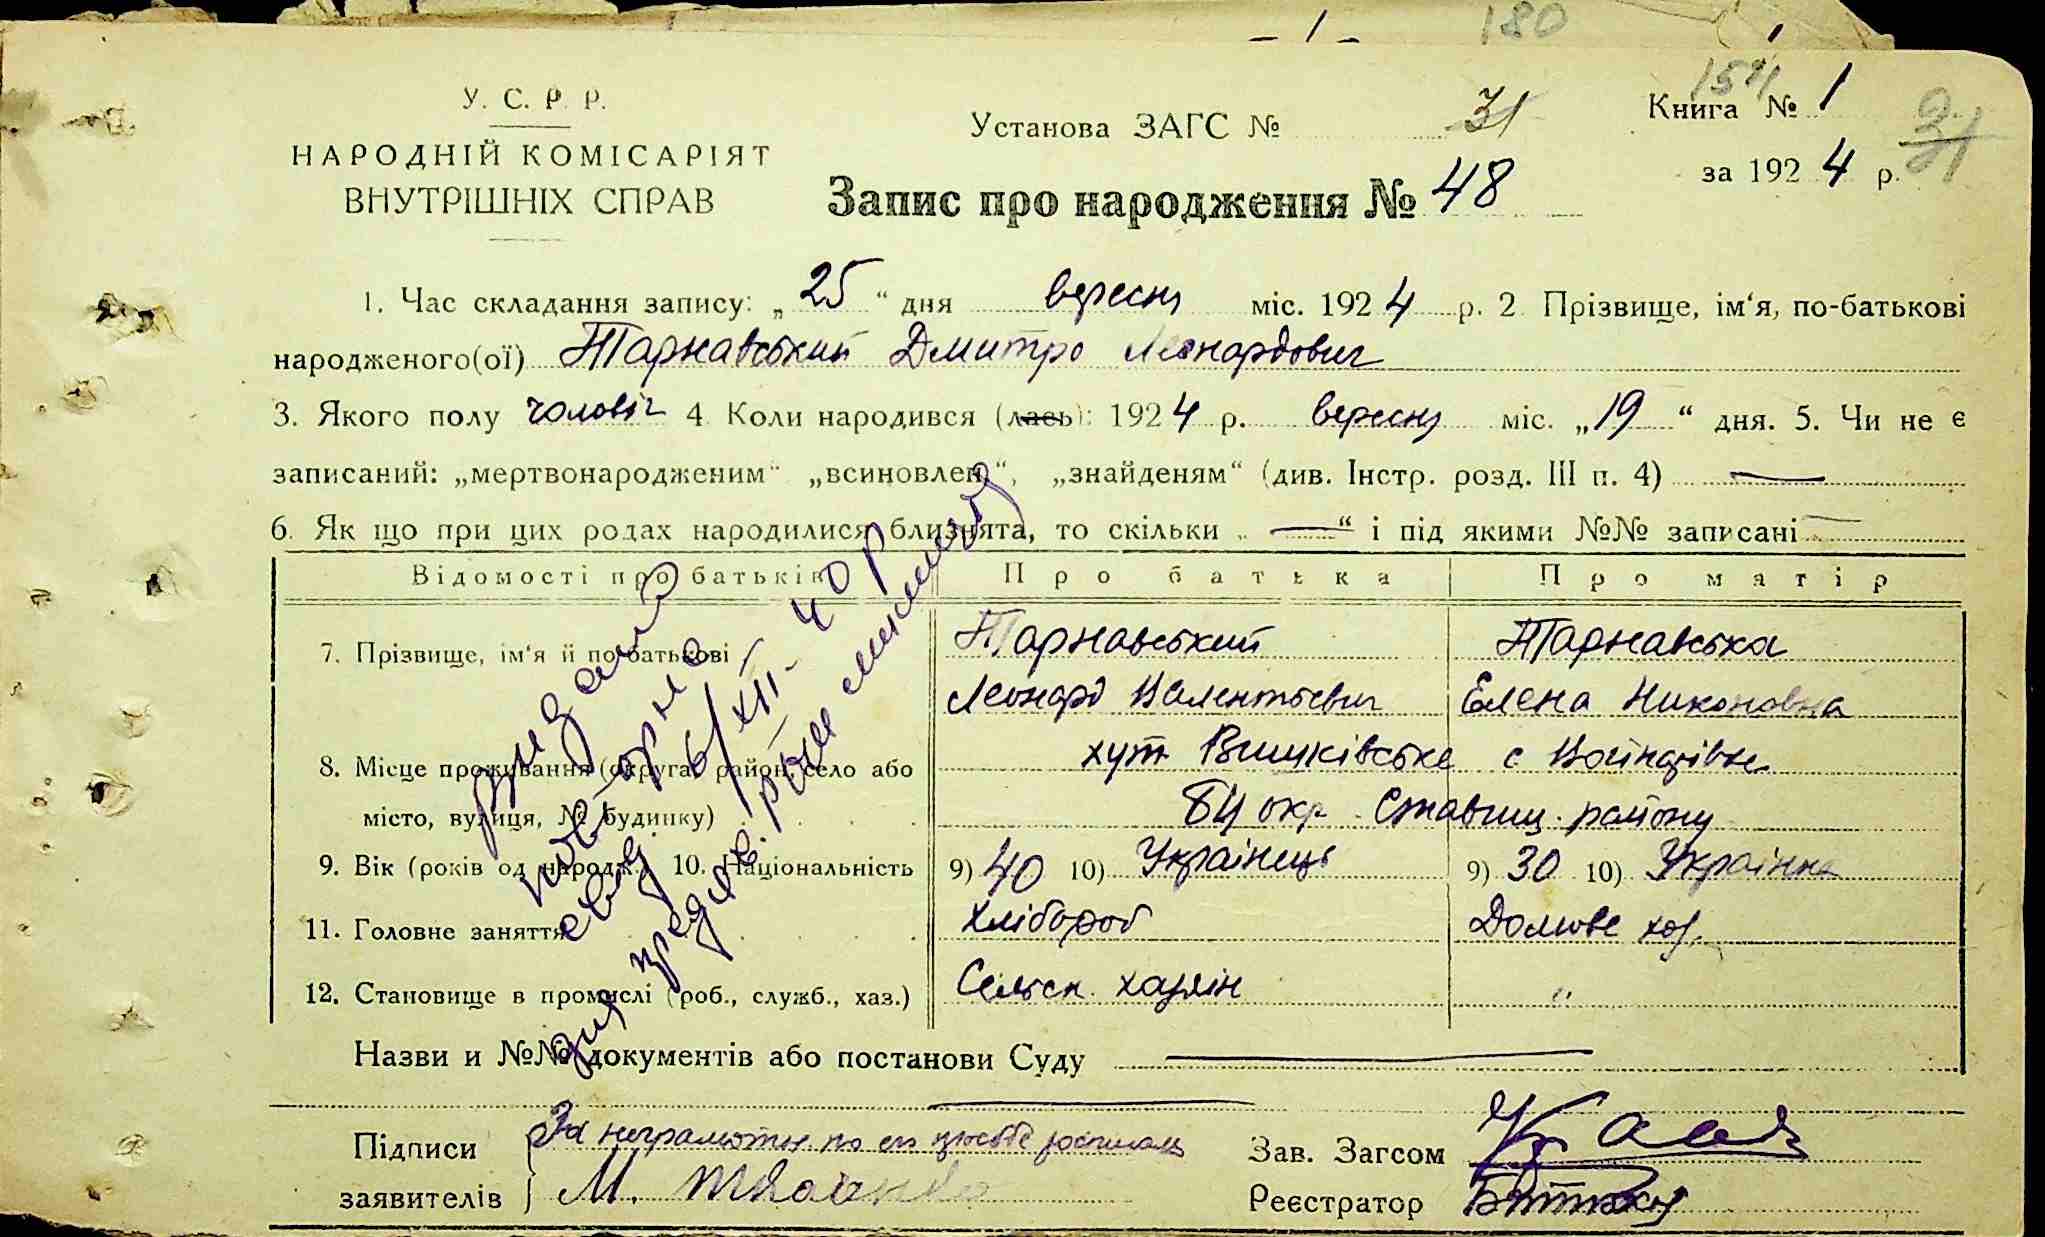 180
У. С. Р. Р.
НАРОДНІЙ КОМІСАРІЯТ
ВНУТРІШНІХ СПРАВ
Установа ЗАГС № 31
Книга № 1
за 1924 р.
31
Запис про народження № 48
1. Час складання запису: „25“ дня вересня міс. 1924 р. 2. Прізвище, ім‘я, по-батькові
народженого(ої) Тарнавський Дмитро Леонардович
3. Якого полу чоловіч 4 Коли народився (лась): 1924 р. вересня міс. „19“ дня. 5. Чи не є
записаний: „мертвонародженим“ „всиновлен“, „знайденям“ (див. Інстр. розд. III п. 4) —
6. Як що при цих родах народилися близнята, то скільки „—“ і під якими №№ записані —
Відомості про батьків Про батька Про матір
7. Прізвище, ім‘я й по-батькові Тарнавський Тарнавська
Леонард Валентієвич Елена Никоновна
8. Місце проживання (округа, район, село або хут с
місто, вулиця, № будинку) БЦ окр. Ставищ. району
9. Вік (років од народж.) 10. Національність 9) 40 10) Українець 9) 30 10) Українка
11. Головне заняття Хлібороб Домове хоз.
12. Становище в промислі (роб., служб., хаз.) Сельск. хазяін "
Назви и №№ документів або постанови Суду —
Підписи За неграмотн. по
заявителів М.
Зав. Загсом
Реєстратор
Выдано
повторно
свид. 6/XII-40 р
для